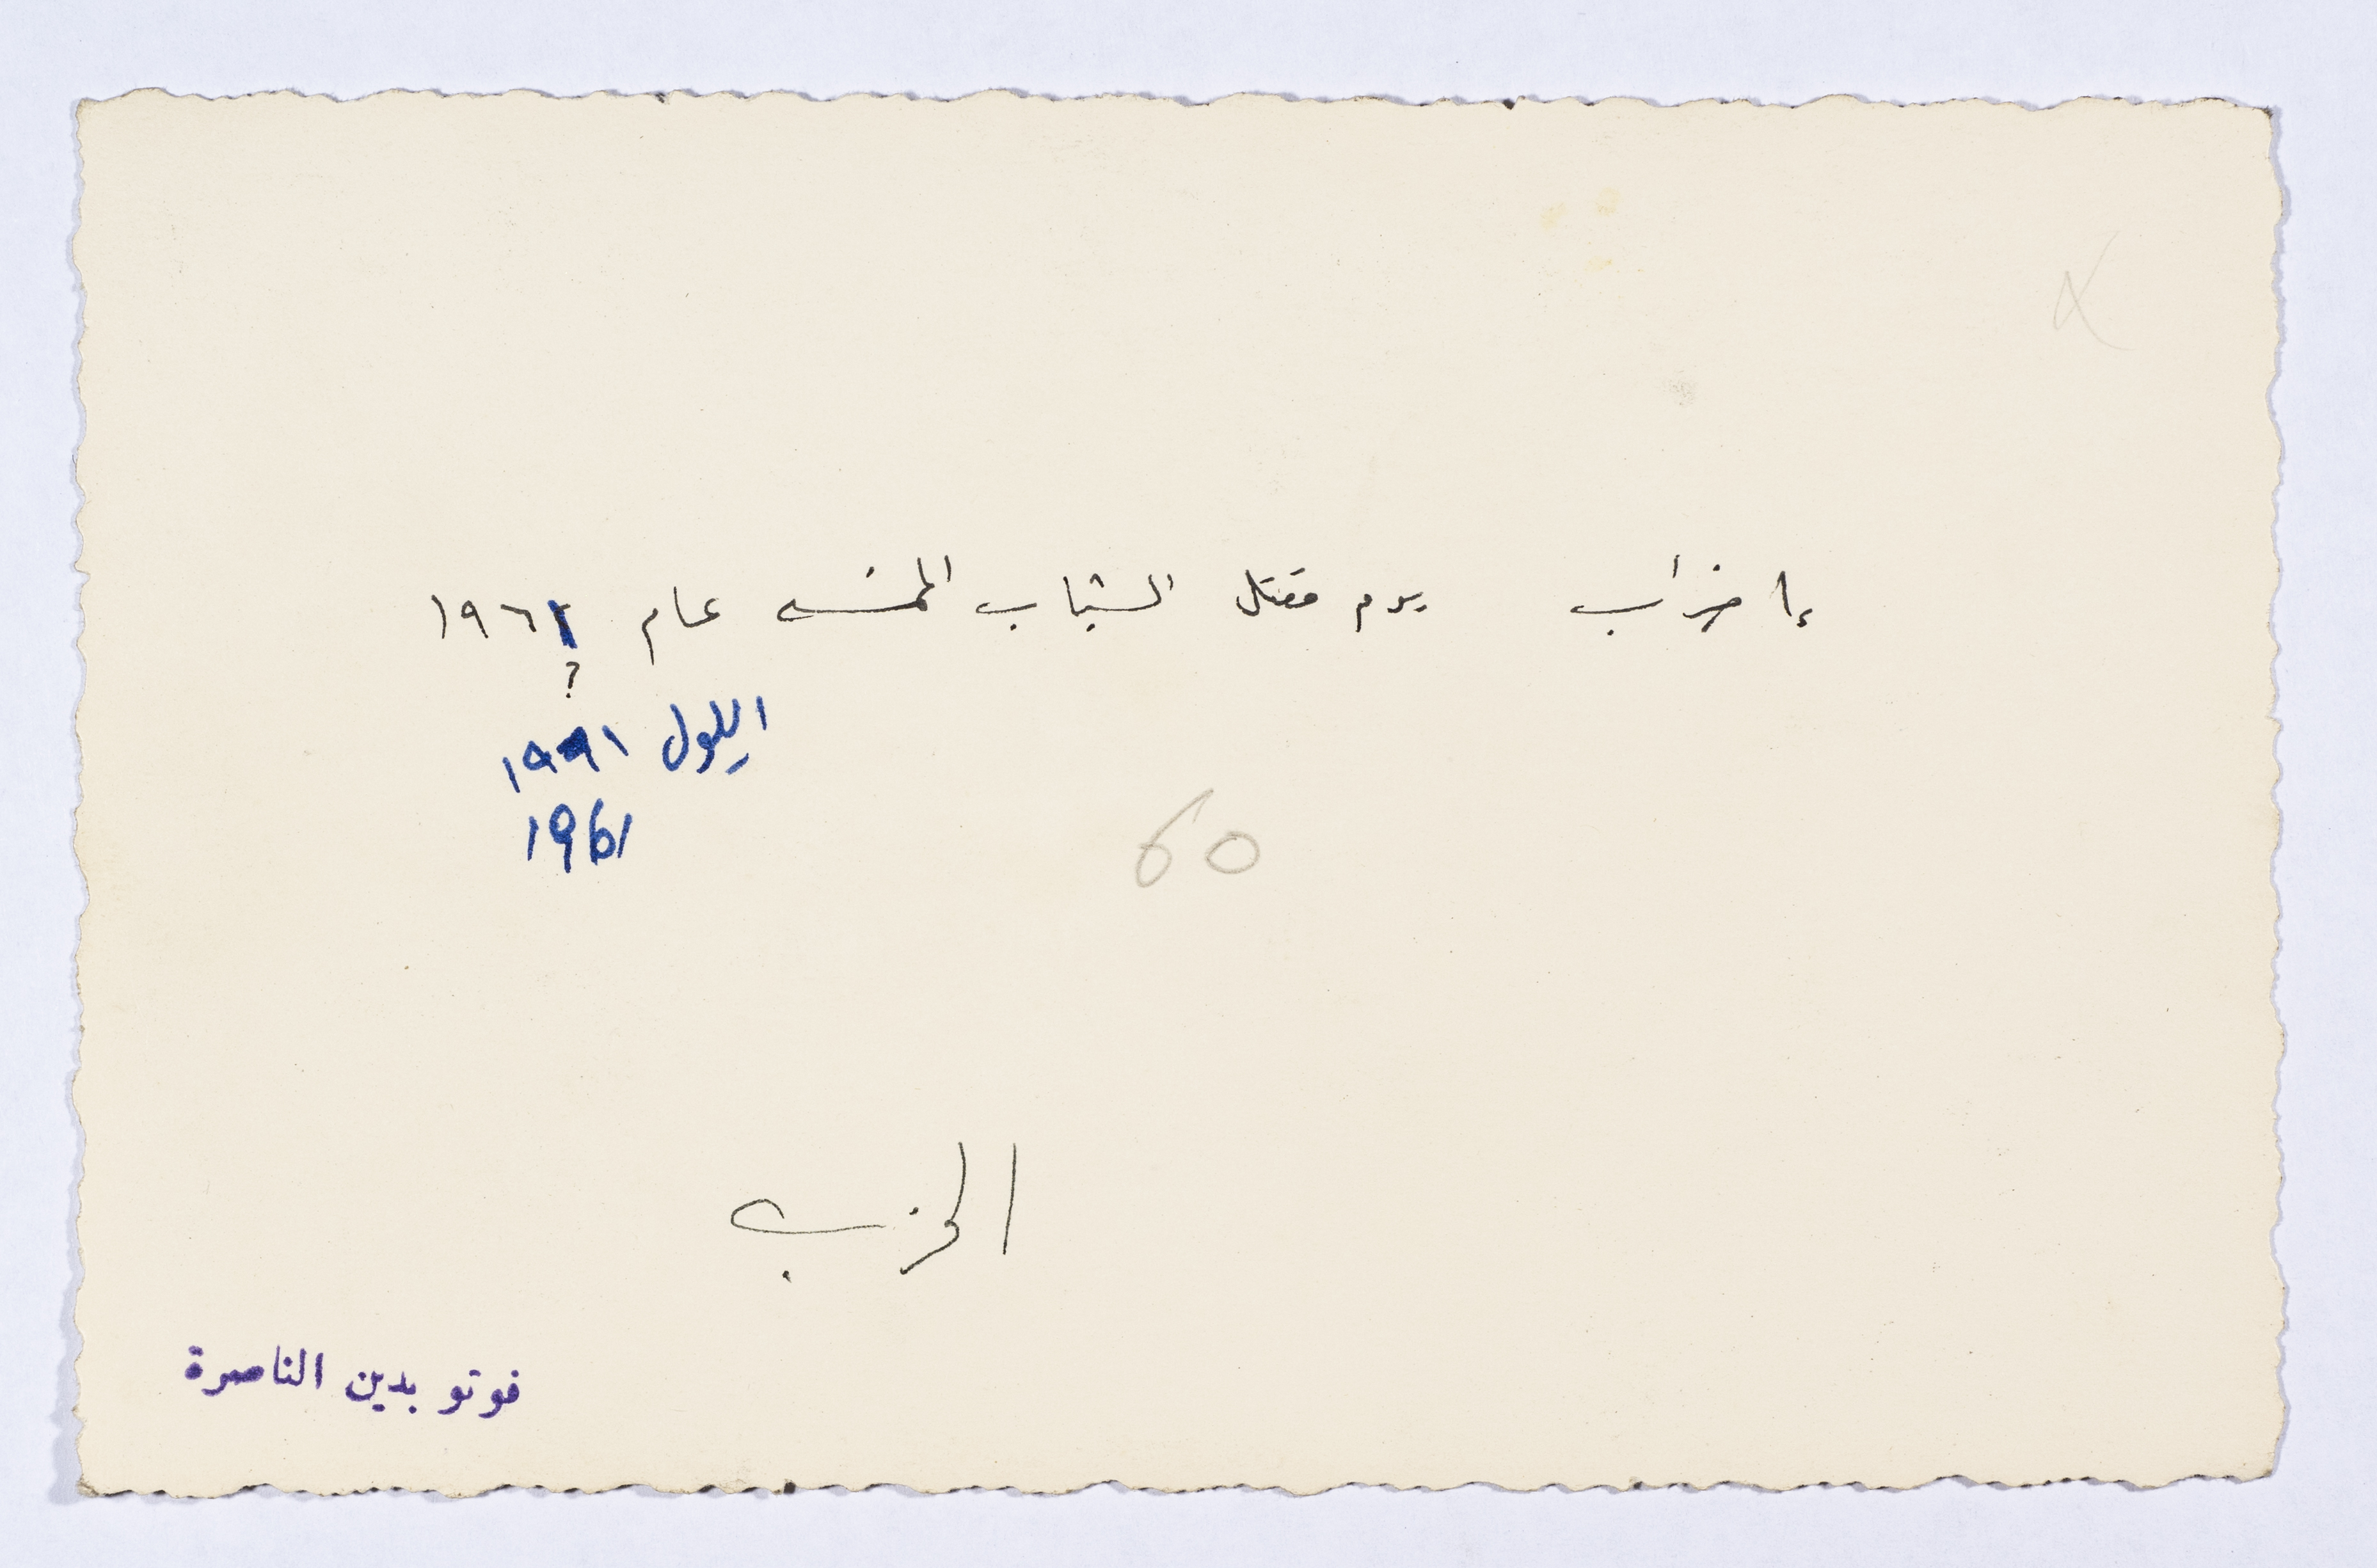 إضراب يوم مقتل الشباب الخمسه عام ١٩٦١
?
ايلول ١٩٩١
1961
60
الحزب
فوتو بدين الناصرة